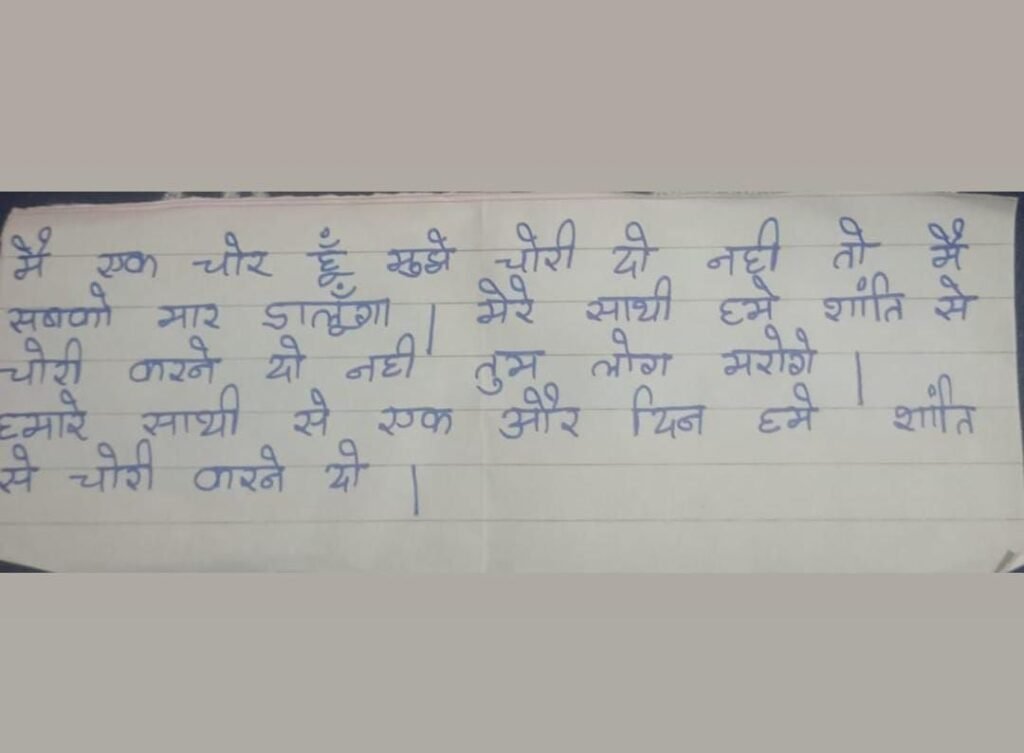 मै एक चोर हूँ मुझे चोरी दो नही तो मै
सबको मार डालूँगा | मेरे साथी हमे शांति से
चोरी करने दो नही तुम लोग मरोगे |
हमारे साथी से एक और दिन हमे शांति
से चोरी करने दो |